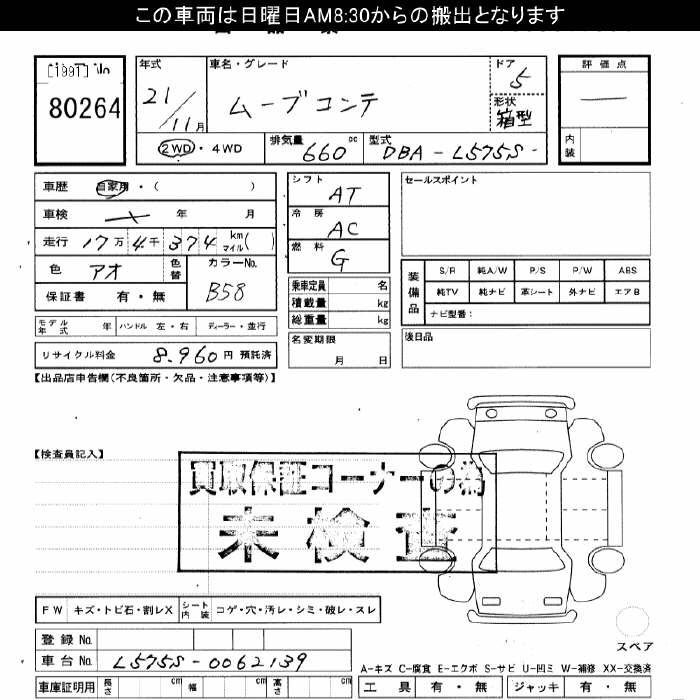 この車両は日曜日AM8:30からの搬出となります
[1991] No
80264
年式
21/11月
車名・グレード
ムーブコンテ
ドア
5
形状
箱型
評価点
—
2WD・4WD
排気量 660 cc
型式 DBA-L575S-
内装
車歴 自家用・( )
車検 年 月
走行 17万4千374 km マイル( )
色 アオ 色替
カラーNo. B58
保証書 有・無
シフト AT
冷房 AC
燃料 G
乗車定員 名
積載量 kg
総重量 kg
名変期限
月 日
セールスポイント
装備品
S/R 純A/W P/S P/W ABS
純TV 純ナビ 革シート 外ナビ エアB
ナビ型番:
後日品
モデル年式 年 ハンドル 左・右 ディーラー・並行
リサイクル料金 8,960円 預託済
【出品店申告欄(不良箇所・欠品・注意事項等)】
【検査員記入】
買取保証コーナーの為
未検査
FW キズ・トビ石・割レX シート内装 コゲ・穴・汚レ・シミ・破レ・スレ
スペア
登録No.
車台No. L575S-0062139
A-キズ C-腐食 E-エクボ S-サビ U-凹ミ W-補修 XX-交換済
車庫証明用 長さ cm 幅 cm 高さ cm
工具 有・無 ジャッキ 有・無